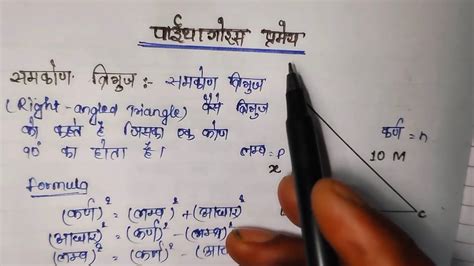 पाईथागोरस प्रमेय
समकोण त्रिभुज :- समकोण त्रिभुज
(Right-angled Triangle) वैसे त्रिभुज
को कहते है जिसका एक कोण
९०° का होता है।
लम्ब = P
x
कर्ण = h
10 M
C
Formula
(कर्ण)² = (लम्ब)² + (आधार)²
(आधार)² = (कर्ण)² - (लम्ब)²
(लम्ब)² = (कर्ण)² - (आधार)²